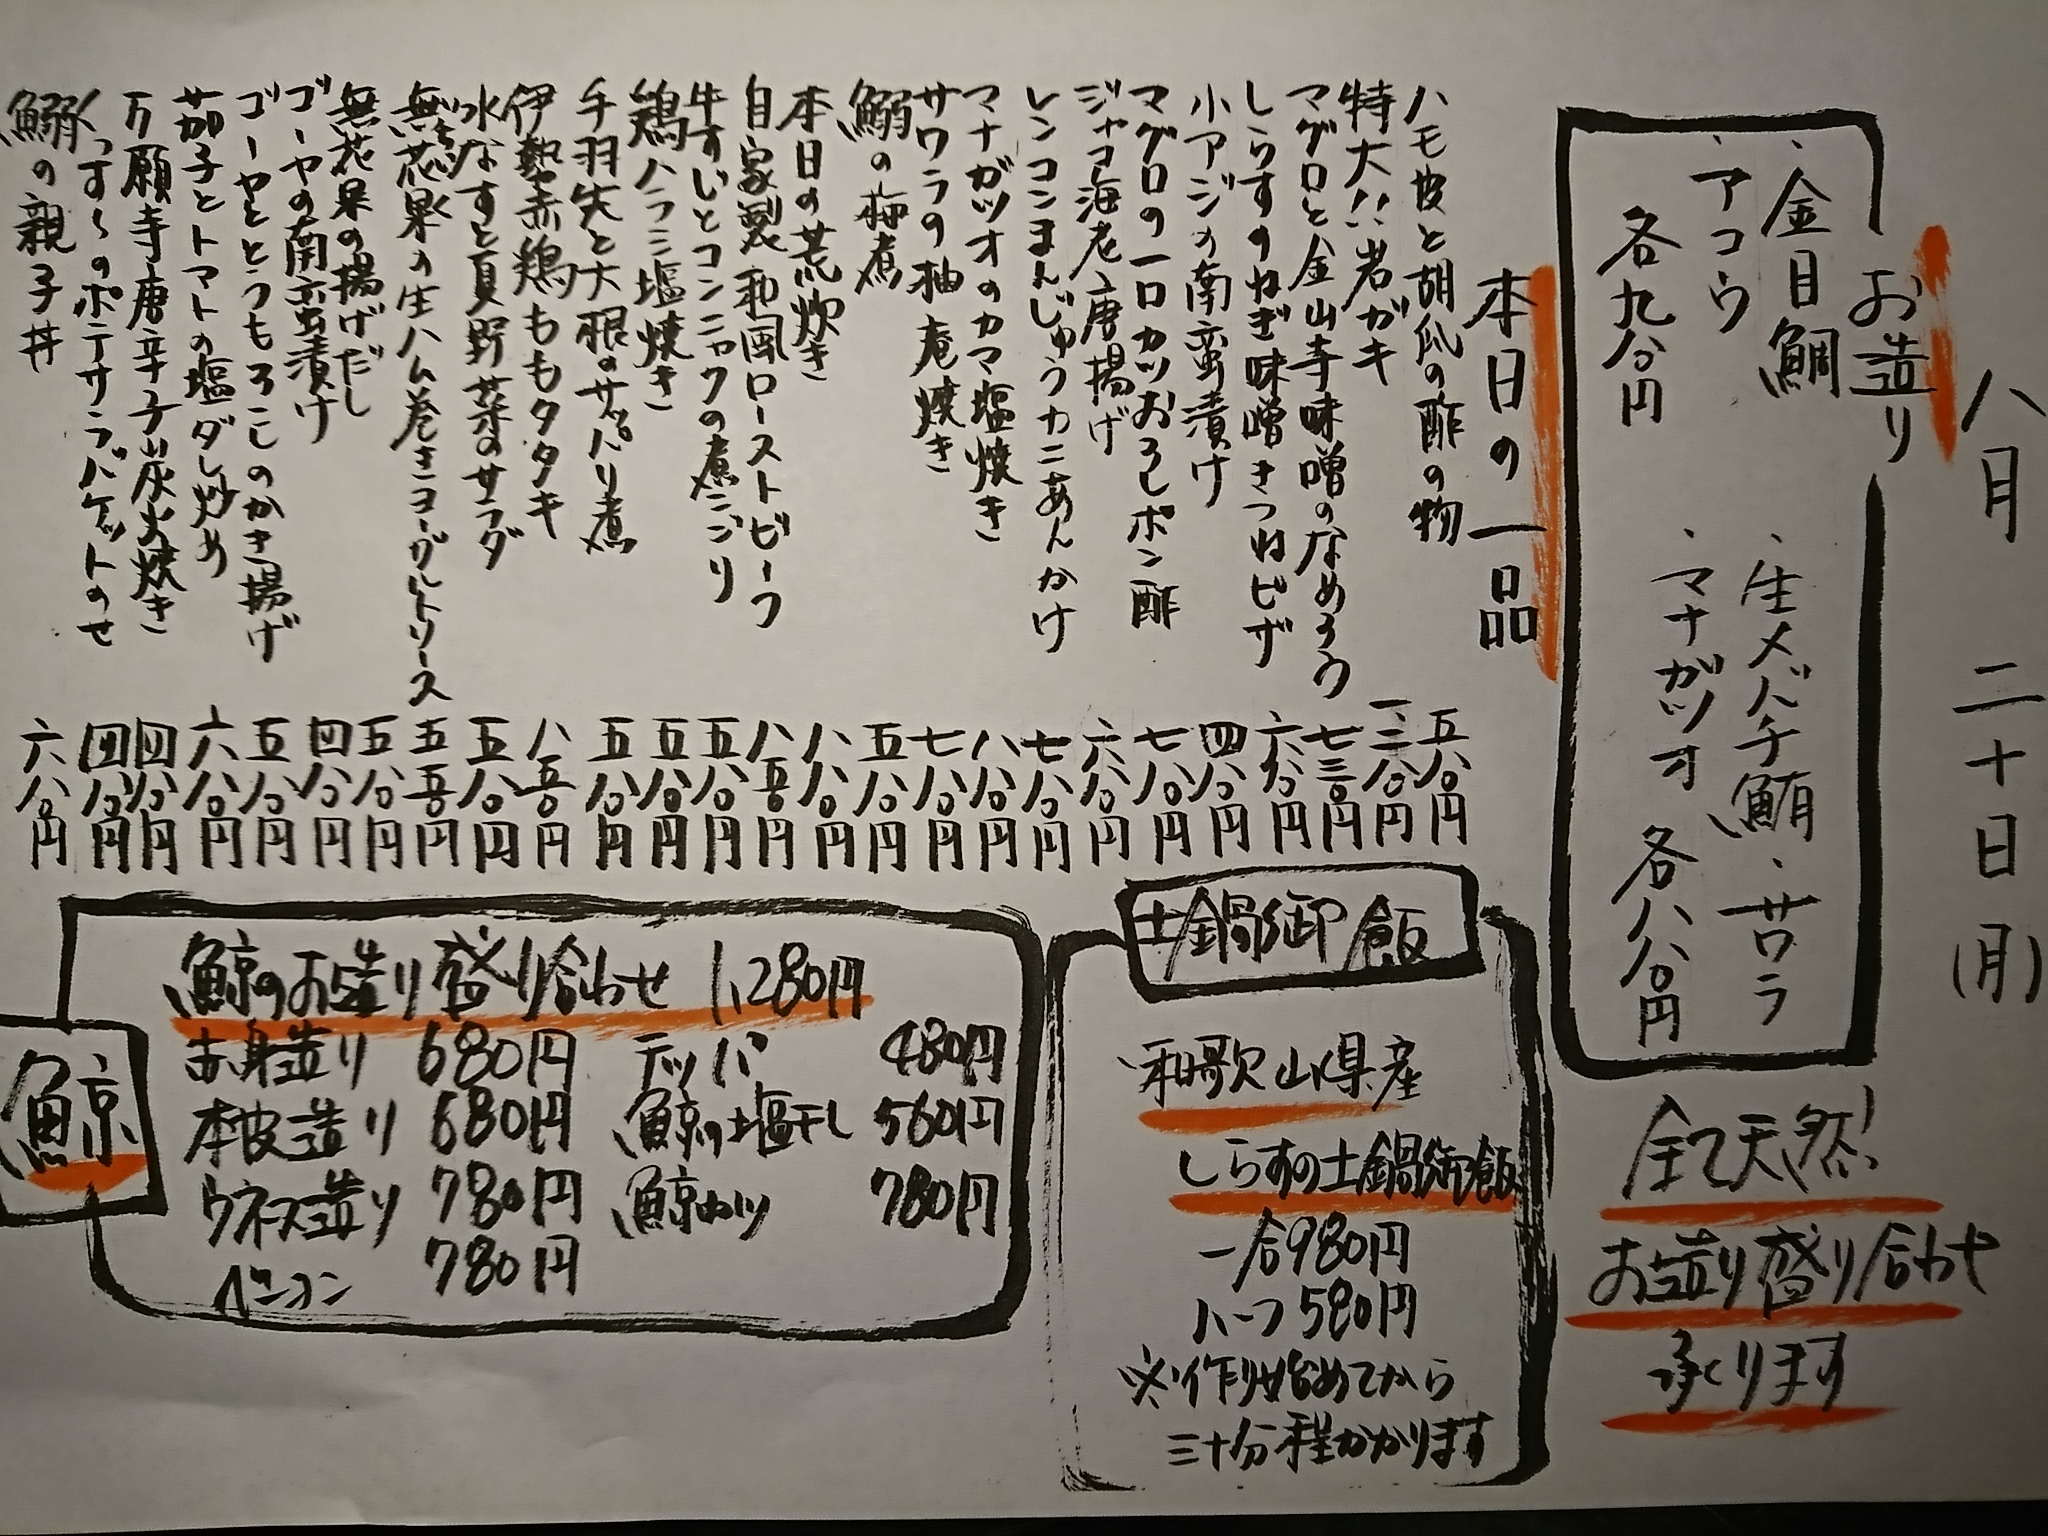 八月二十日(月)
お造り
・金目鯛
・アコウ
各九八〇円
・生メバチ鮪・サワラ
・マナガツオ 各八八〇円
全て天然!
お造り盛り合わせ
承ります
本日の一品
ハモ皮と胡瓜の酢の物 五八〇円
特大!!岩ガキ 一、三八〇円
マグロと金山寺味噌のなめろう 七三〇円
しらすのねぎ味噌きつねピザ 六八〇円
小アジの南蛮漬け 四八〇円
マグロの一口カツおろしポン酢 七八〇円
ジャコ海老唐揚げ 六八〇円
レンコンまんじゅうカニあんかけ 七八〇円
マナガツオのカマ塩焼き 八八〇円
サワラの柚庵焼き 七八〇円
鰯の梅煮 五八〇円
本日の荒炊き 八八〇円
自家製和風ローストビーフ 八五〇円
牛すじとコンニャクの煮こごり 五八〇円
鶏ハラミ塩焼き 五八〇円
手羽先と大根のサッパリ煮 五八〇円
伊勢赤鶏ももタタキ 八五〇円
水なすと夏野菜のサラダ 五八〇円
無花果の生ハム巻きヨーグルトソース 五五〇円
無花果の揚げだし 五八〇円
ゴーヤの南蛮漬け 四八〇円
ゴーヤととうもろこしのかき揚げ 五八〇円
茄子とトマトの塩ダレ炒め 六八〇円
万願寺唐辛子炭火焼き 四八〇円
くっす〜のポテサラバケットのせ 四八〇円
鰯の親子丼 六八〇円
土鍋御飯
・和歌山県産
しらすの土鍋御飯
一合980円
ハーフ580円
※作り始めてから
三十分程かかります
鯨
鯨のお造り盛り合わせ 1,280円
赤身造り 680円 テッパ 480円
本皮造り 680円 鯨の塩干し 560円
ウネス造り 780円 鯨カツ 780円
ベーコン 780円